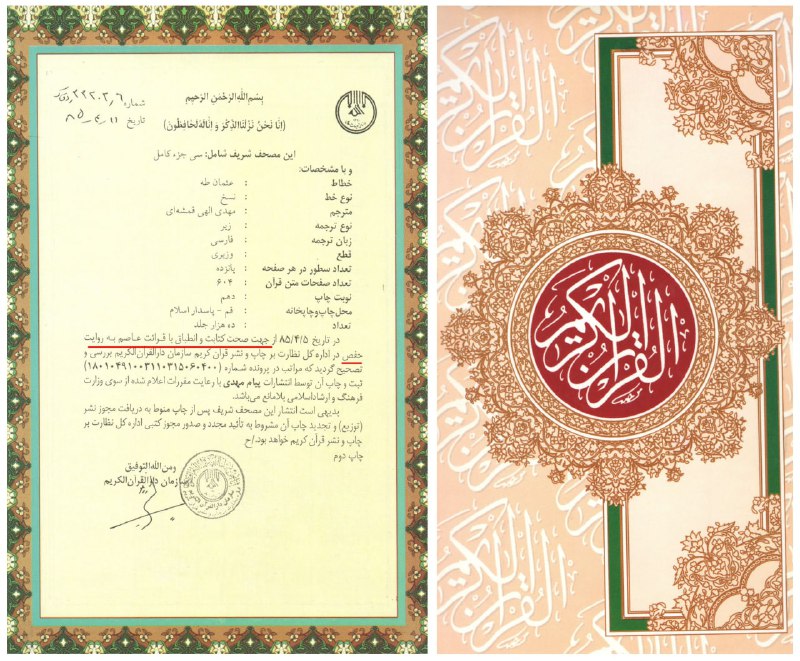 شماره ۳۲۲۰۳/۶
تاریخ ۸۵-۴-۱۱
بِسمِ اللّهِ الرَّحْمنِ الرَّحیمِ
(اِنّا نَحْنُ نَزَّلْنَا الذِّکْرَ وَ اِنّا لَهُ لَحافِظُونَ)
این مصحف شریف شامل: سی جزء کامل
و با مشخصات:
خطاط : عثمان طه
نوع خط : نسخ
مترجم : مهدی الهی قمشه‌ای
نوع ترجمه : زیر
زبان ترجمه : فارسی
قطع : وزیری
تعداد سطور در هر صفحه : پانزده
تعداد صفحات متن قرآن : ۶۰۴
نوبت چاپ : دهم
محل چاپ و چاپخانه : قم - پاسدار اسلام
تعداد : ده هزار جلد
در تاریخ ۸۵/۴/۵ از جهت صحت کتابت و انطباق با قرائت عاصم به روایت
حفص در اداره کل نظارت بر چاپ و نشر قرآن کریم سازمان دارالقرآن‌الکریم بررسی و
تصحیح گردید که مراتب در پرونده شماره (۱۸۰۱۰۴۹۱۰۰۳۱۱۰۳۱۵۰۶۰۴۰۰)
ثبت و چاپ آن توسط انتشارات پیام مهدی با رعایت مقررات اعلام شده از سوی وزارت
فرهنگ و ارشاد اسلامی بلامانع می‌باشد.
بدیهی است انتشار این مصحف شریف پس از چاپ منوط به دریافت مجوز نشر
(توزیع) و تجدید چاپ آن مشروط به تأئید مجدد و صدور مجوز کتبی اداره کل نظارت بر
چاپ و نشر قرآن کریم خواهد بود./ح
چاپ دوم
ومن اللّه التوفیق
سازمان دارالقرآن الکریم
القرآن الكريم